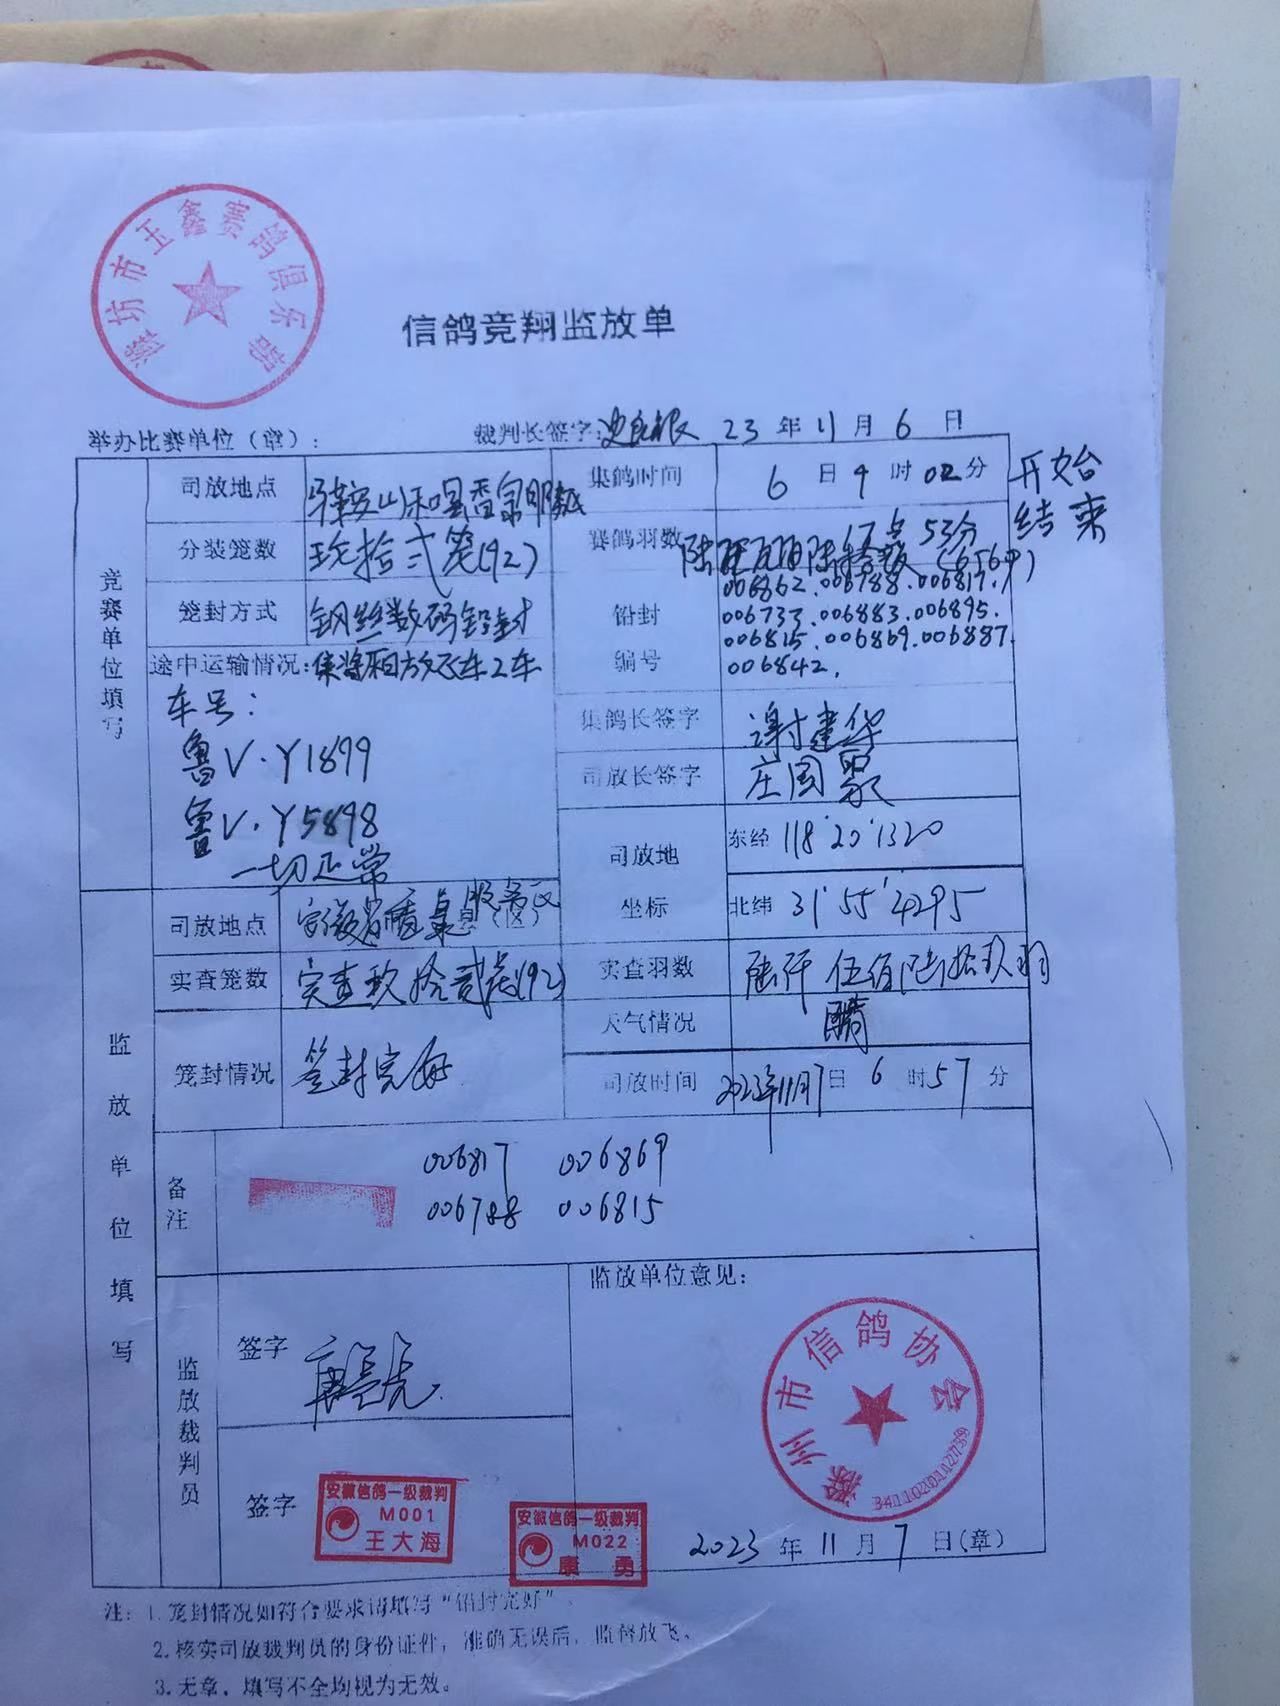 潍坊市玉鑫赛鸽俱乐部
信鸽竞翔监放单
举办比赛单位（章）：
裁判长签字: 23 年 11 月 6 日
竞赛单位填写
司放地点
集鸽时间 6 日 9 时 02 分 开始
17点53分 结束
分装笼数 玖拾贰笼(92)
赛鸽羽数 (6569)
笼封方式 钢丝数码铅封
铅封编号
006862.006788.006817.
006733.006883.006895.
006815.006869.006887.
006842.
途中运输情况: 集装箱放飞车2车
车号：
鲁V·Y1899
鲁V·Y5898
一切正常
集鸽长签字 谢建华
司放长签字
司放地坐标
东经 118°20′1320
北纬 31°55′4295
监放单位填写
司放地点 安徽省香泉服务区
实查笼数 实查玖拾贰笼(92)
实查羽数 陆仟伍佰陆拾玖羽
笼封情况 笼封完好
天气情况 晴
司放时间 2023年11月7日 6 时 57 分
备注
006817 006869
006788 006815
监放裁判员
签字
签字
安徽信鸽一级裁判
M001
王大海
安徽信鸽一级裁判
M022
康勇
监放单位意见：
滁州市信鸽协会
3411020102739
2023 年 11 月 7 日(章)
注：1.笼封情况如符合要求请填写“铅封完好”。
2.核实司放裁判员的身份证件，准确无误后，监督放飞。
3.无章，填写不全均视为无效。